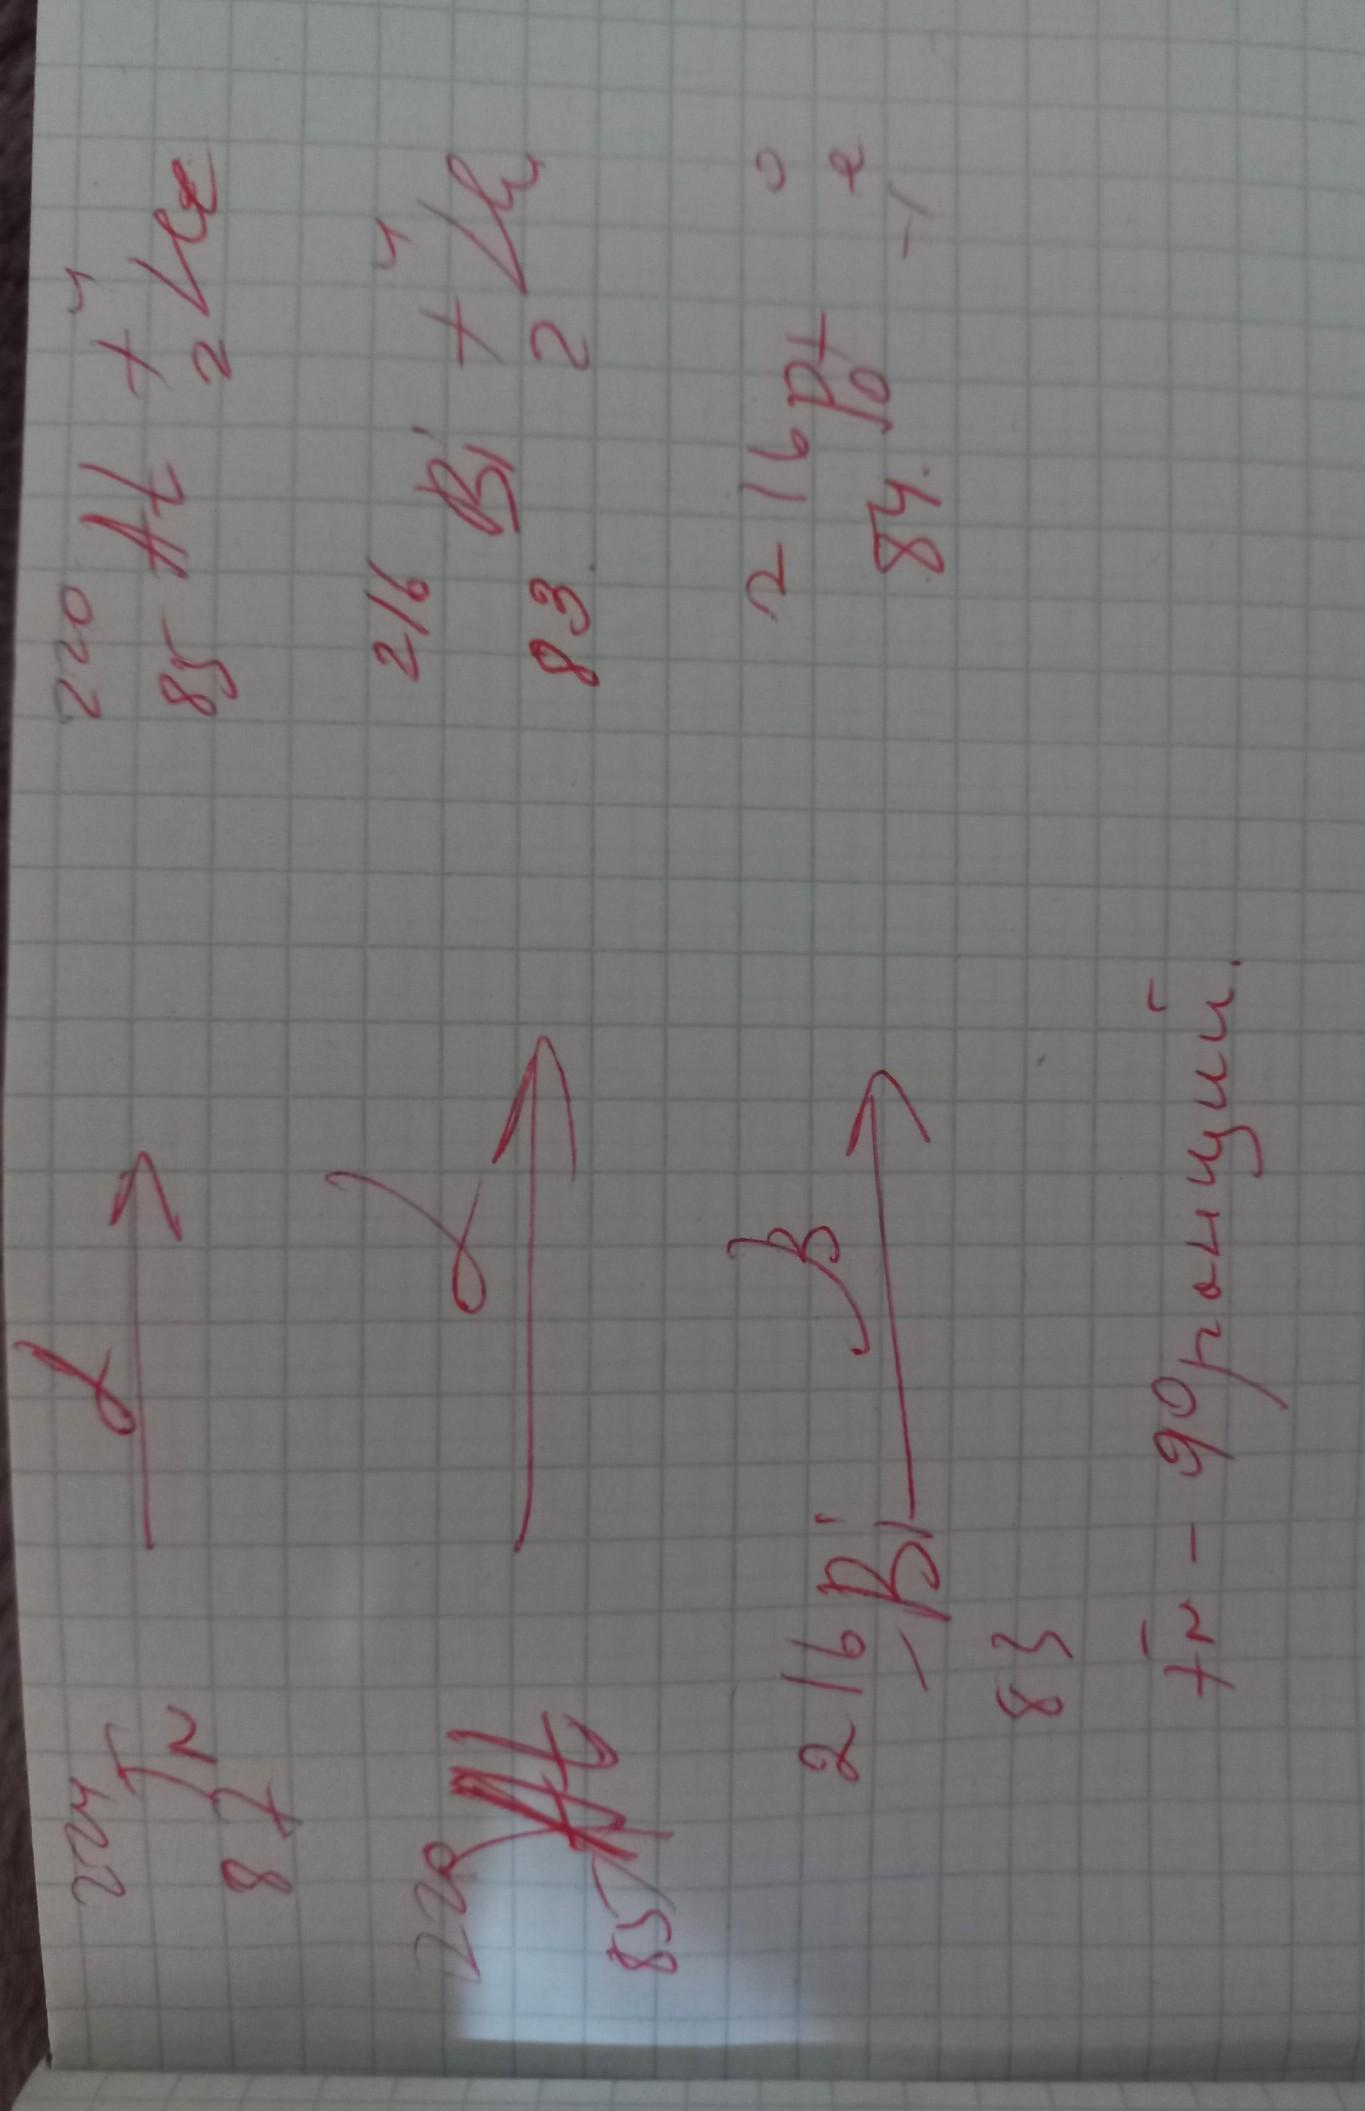 224 Fr 87 α → 220 At 85 + 4 He 2
220 At 85 α → 216 Bi 83 + 4 He 2
216 Bi 83 β → 216 Po 84 + 0 e -1
Fr - франций.